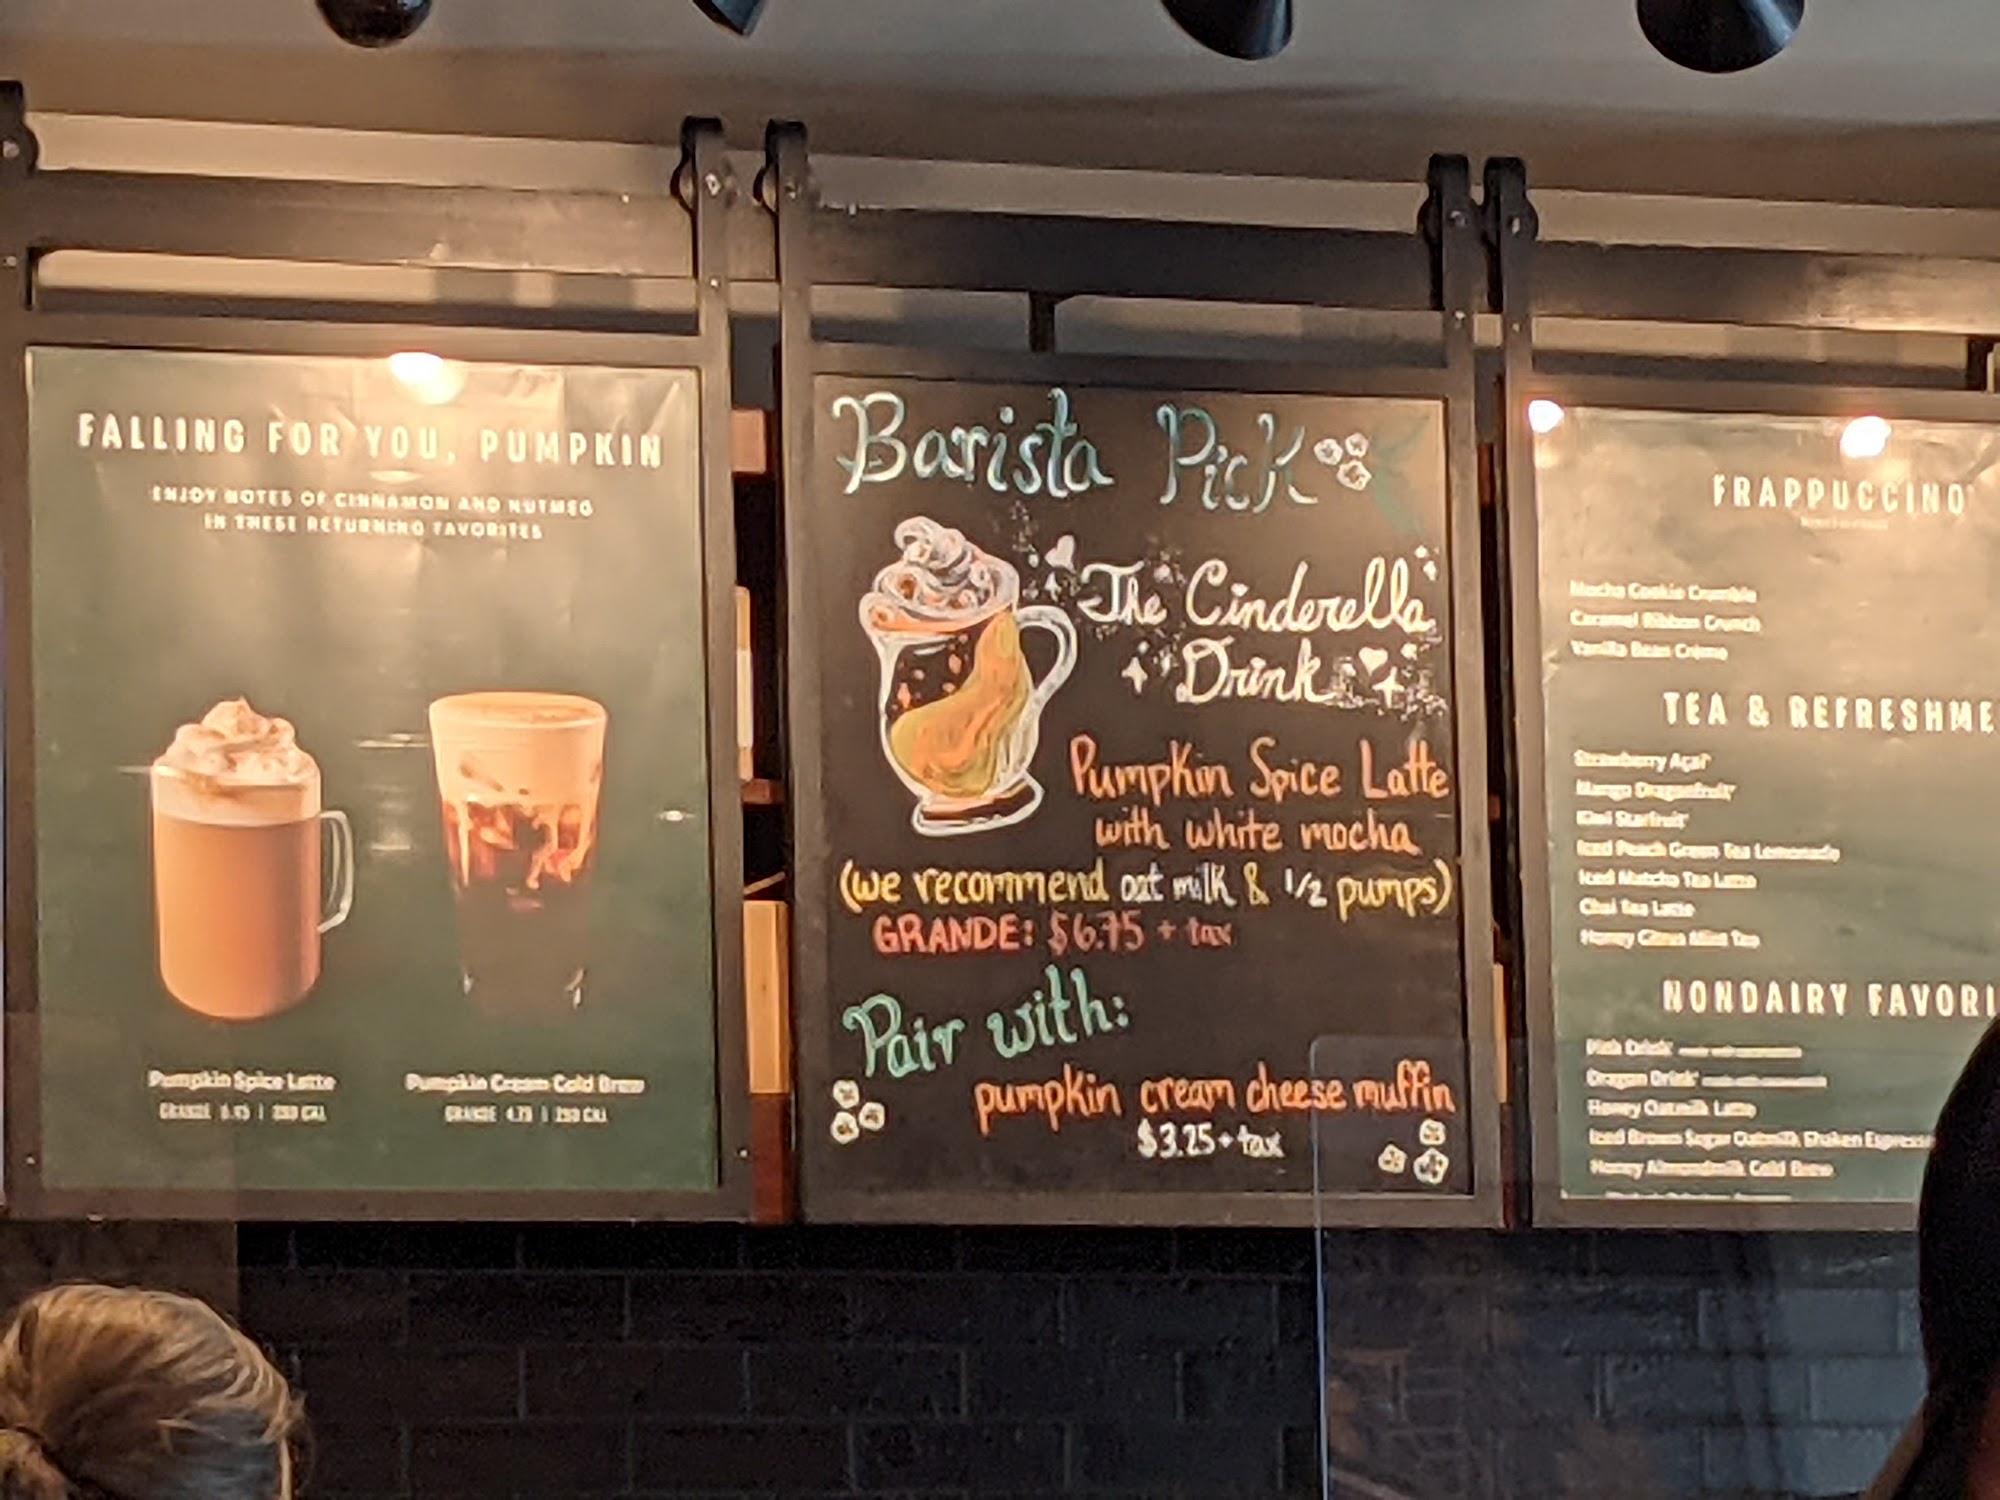 FALLING FOR YOU, PUMPKIN
ENJOY NOTES OF CINNAMON AND NUTMEG
IN THESE RETURNING FAVORITES
Pumpkin Spice Latte
GRANDE
Pumpkin Cream Cold Brew
GRANDE
Barista Pick
The Cinderella
Drink
Pumpkin Spice Latte
with white mocha
(we recommend oat milk & 1/2 pumps)
GRANDE: $6.75 + tax
Pair with:
pumpkin cream cheese muffin
$3.25 + tax
FRAPPUCCINO
Mocha Cookie Crumble
Caramel Ribbon Crunch
Vanilla Bean Crème
TEA & REFRESHME
Strawberry Açaí
Mango Dragonfruit
Kiwi Starfruit
Iced Peach Green Tea Lemonade
Iced Matcha Tea Latte
Chai Tea Latte
Honey Citrus Mint Tea
NONDAIRY FAVORI
Pink Drink
Dragon Drink
Honey Oatmilk Latte
Iced Brown Sugar Oatmilk Shaken Espresso
Honey Almondmilk Cold Brew